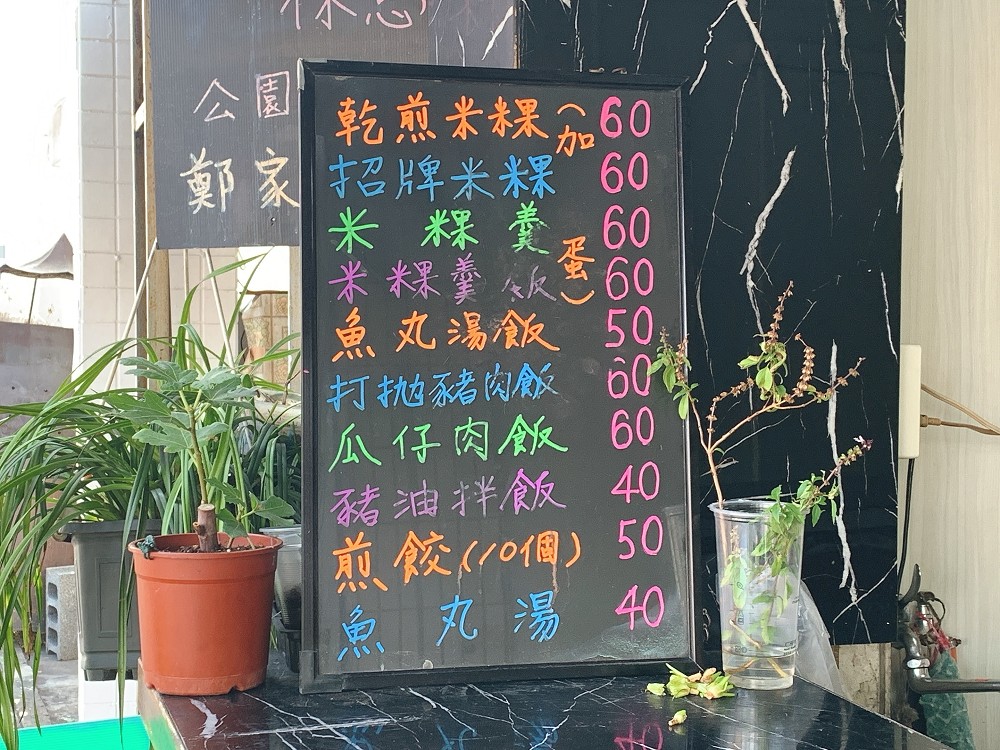 公園
鄭家
乾煎米粿(加 60
招牌米粿 60
米粿羹 60
米粿羹飯 蛋) 60
魚丸湯飯 50
打拋豬肉飯 60
瓜仔肉飯 60
豬油拌飯 40
煎餃(10個) 50
魚丸湯 40